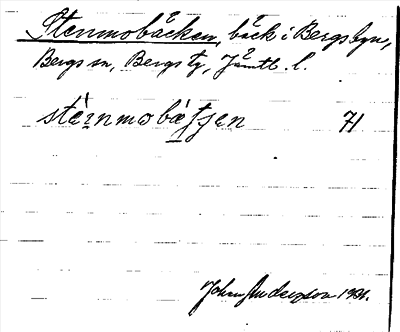 Stenmobäcken, bäck i Bergsbyn,
Bergs sn, Bergs tg, Jämtl. l.
71
Johan Anderzson 1931.